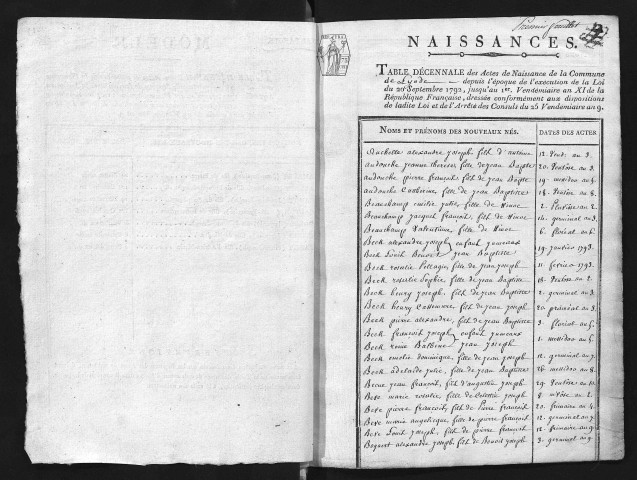 Premier feuillet
NAISSANCES.
TABLE DÉCENNALE des Actes de Naissance de la Commune
de depuis l'époque de l'exécution de la Loi
du 20 Septembre 1792, jusqu'au 1er. Vendémiaire an XI de la
République Française, dressée conformément aux dispositions
de ladite Loi et de l'Arrêté des Consuls du 25 Vendémiaire an 9.
NOMS ET PRÉNOMS DES NOUVEAUX NÉS. DATES DES ACTES
alexandre joseph fils d'antoine 12 vend. an 3.
audouche jeanne therese fille de jean Bapte 20 Ventose an 3.
audouche pierre françois fils de jean Bapte 19 messidor an 6.
audouche Catherine fille de jean Baptiste 18 Ventose an 8.
Beauchamp julie, fille de 2 Pluviose an 2.
Beauchamp jacques françois, fils de 14 germinal an 3.
Beauchamp Valentine fille de 6 floréal an 6.
Beck alexandre joseph enfant jumeaux 19 janvier 1793.
Beck Louis Benoit jean Baptiste
Beck rosalie Pelagie, fille de jean joseph 11 fevrier 1793.
Beck rosalie Sophie, fille de jean Baptiste 18 Ventose an 2.
Beck henry joseph, fils de jean Baptiste 2 germinal an 3.
Beck henry fils de jean Baptiste 20 prairial an 3.
Beck pierre alexandre, fils de jean Baptiste 3 floréal an 6.
Beck françois joseph enfant jumeaux 1 messidor an 6.
Beck reine Balbine jean joseph
Beck dominique, fille de jean joseph 12 germinal an 7.
Beck adelaide julie, fille de jean Baptiste 26 messidor an 8.
jean françois, fils d'augustin joseph 29 Ventose an
marie rosalie, fille de joseph 8 nivose an 2.
pierre françois, fils de Pierre françois 20 frimaire an 4.
marie angelique fille de pierre françois 12 germinal an 7.
Louis joseph, fils de pierre françois 12 frimaire an 9.
alexandre joseph, fils de Benoit joseph 3 germinal an 9.